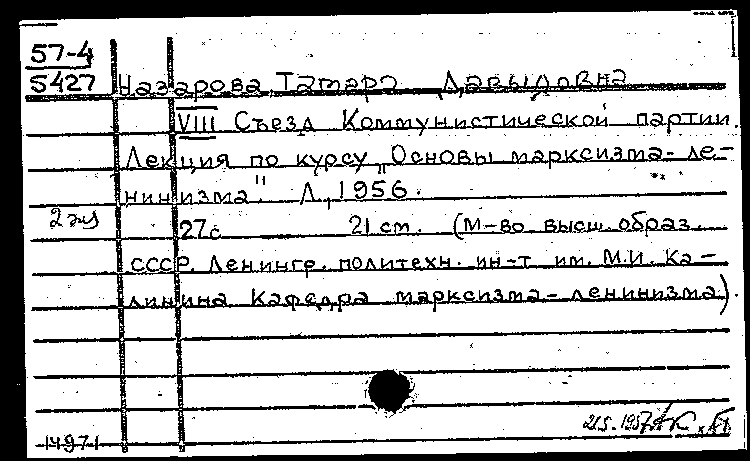 57-4
5427 Назарова, Тамара Давыдовна
VIII Съезд Коммунистической партии.
Лекция по курсу „Основы марксизма-ле-
нинизма". Л., 1956.
2 экз 27с. 21 см. (М-во высш. образ.
СССР. Ленингр. политехн. ин-т им. М.И. Ка-
линина Кафедра марксизма-ленинизма).
14971